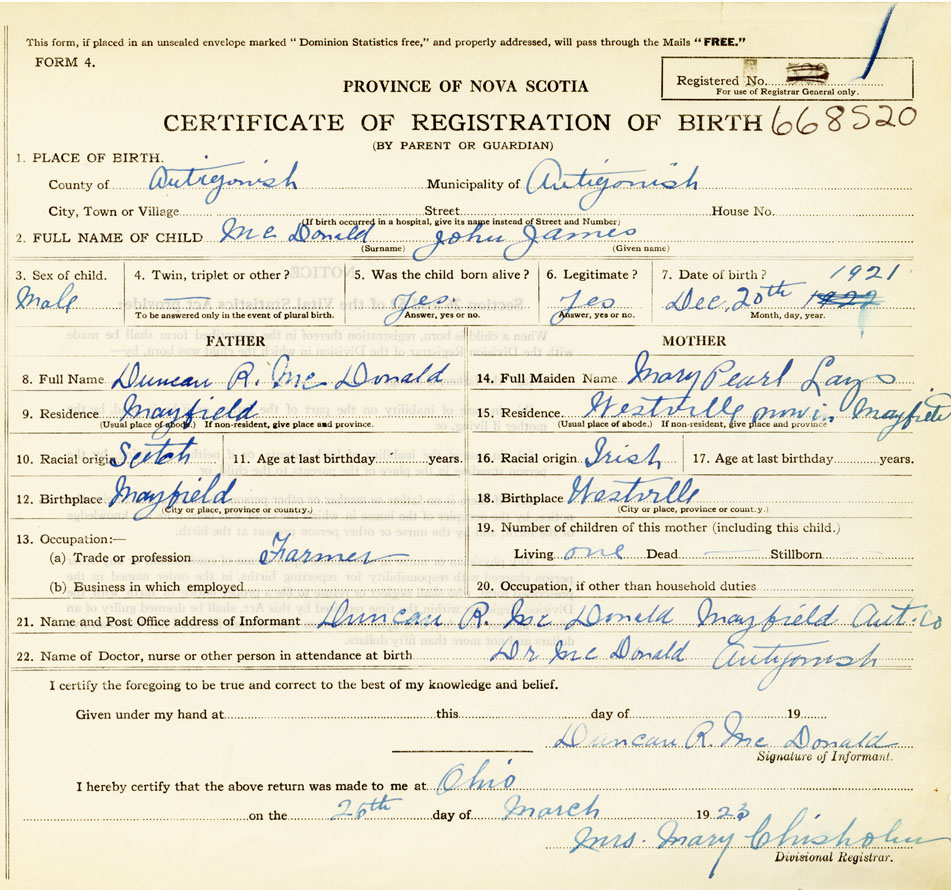 This form, if placed in an unsealed envelope marked “ Dominion Statistics free,” and properly addressed, will pass through the Mails “FREE.”
FORM 4.
PROVINCE OF NOVA SCOTIA
Registered No.
For use of Registrar General only.
CERTIFICATE OF REGISTRATION OF BIRTH 668520
(BY PARENT OR GUARDIAN)
1. PLACE OF BIRTH.
County of Antigonish Municipality of Antigonish
City, Town or Village Street House No.
(If birth occurred in a hospital, give its name instead of Street and Number)
2. FULL NAME OF CHILD Mc Donald John James
(Surname) (Given name)
3. Sex of child. 4. Twin, triplet or other? 5. Was the child born alive? 6. Legitimate? 7. Date of birth? 1921
Male Yes Yes Dec, 20th 1922
To be answered only in the event of plural birth. Answer, yes or no. Answer, yes or no. Month, day, year.
FATHER MOTHER
8. Full Name Duncan R. Mc Donald 14. Full Maiden Name Mary Pearl Lays
9. Residence Mayfield 15. Residence. Westville now in Mayfield
(Usual place of abode.) If non-resident, give place and province. (Usual place of abode.) If non-resident, give place and province
10. Racial origin Scotch 11. Age at last birthday years. 16. Racial origin Irish 17. Age at last birthday years.
12. Birthplace Mayfield 18. Birthplace Westville
(City or place, province or country.) (City or place, province or country.)
13. Occupation:— 19. Number of children of this mother (including this child.)
(a) Trade or profession Farmer Living one Dead Stillborn
(b) Business in which employed 20. Occupation, if other than household duties
21. Name and Post Office address of Informant Duncan R. Mc Donald Mayfield Ant. Co
22. Name of Doctor, nurse or other person in attendance at birth Dr Mc Donald Antigonish
I certify the foregoing to be true and correct to the best of my knowledge and belief.
Given under my hand at this day of 19
Duncan R. Mc Donald
Signature of Informant.
I hereby certify that the above return was made to me at Ohio
on the 26th day of March 1923
Mrs. Mary Chisholm
Divisional Registrar.